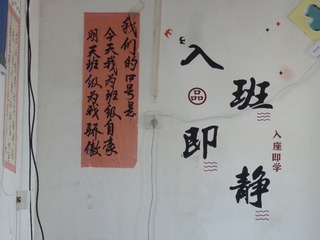 我们的口号是
今天我为班级自豪
明天班级为我骄傲
入班即静
品
入座即学